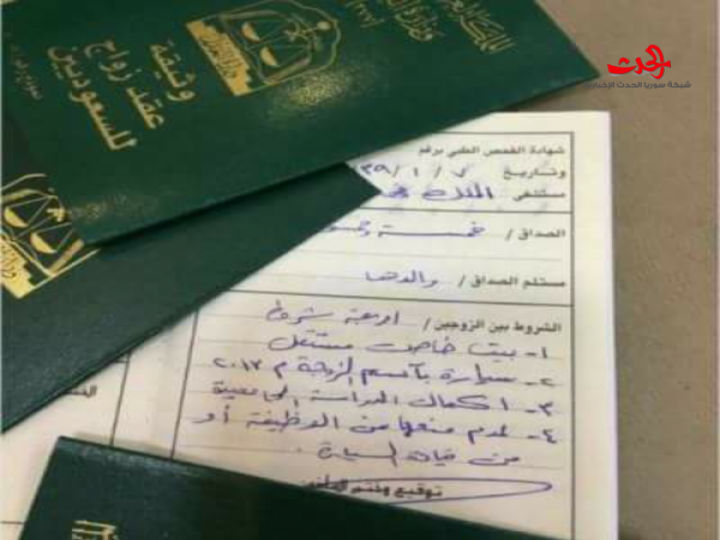 وزارة العدل
(٢٧٧)
وثيقة
عقد زواج
للسعوديين
الحدث
شبكة سوريا الحدث الإخبارية
شهادة الفحص الطبي برقم
وتاريخ ٧ / ١ / ٣٩
مستشفى الملك
الصداق / خمسة
مستلم الصداق / والدها
الشروط بين الزوجين / اربعة شروط
١- بيت خاص مستقل
٢- سيارة بآسم الزوجة م ٢٠١٣
٣- اكمال الدراسة الجامعية
٤- عدم منعها من الوظيفة أو
من قيادة السيارة .
توقيع